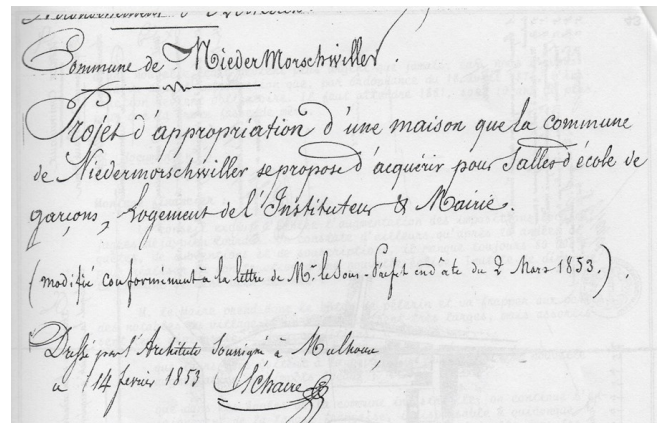 Commune de NiederMorschwiller.
Projet d'appropriation d'une maison que la commune
de Niedermorschwiller se propose d'acquérir pour Salles d'école de
garçons, Logement de l'Instituteur & Mairie.
(modifié conformément à la lettre de Mr. le Sous-Préfet en date du 2 Mars 1853.).
Dressé par l'Architecte soussigné à Mulhouse,
14 février 1853